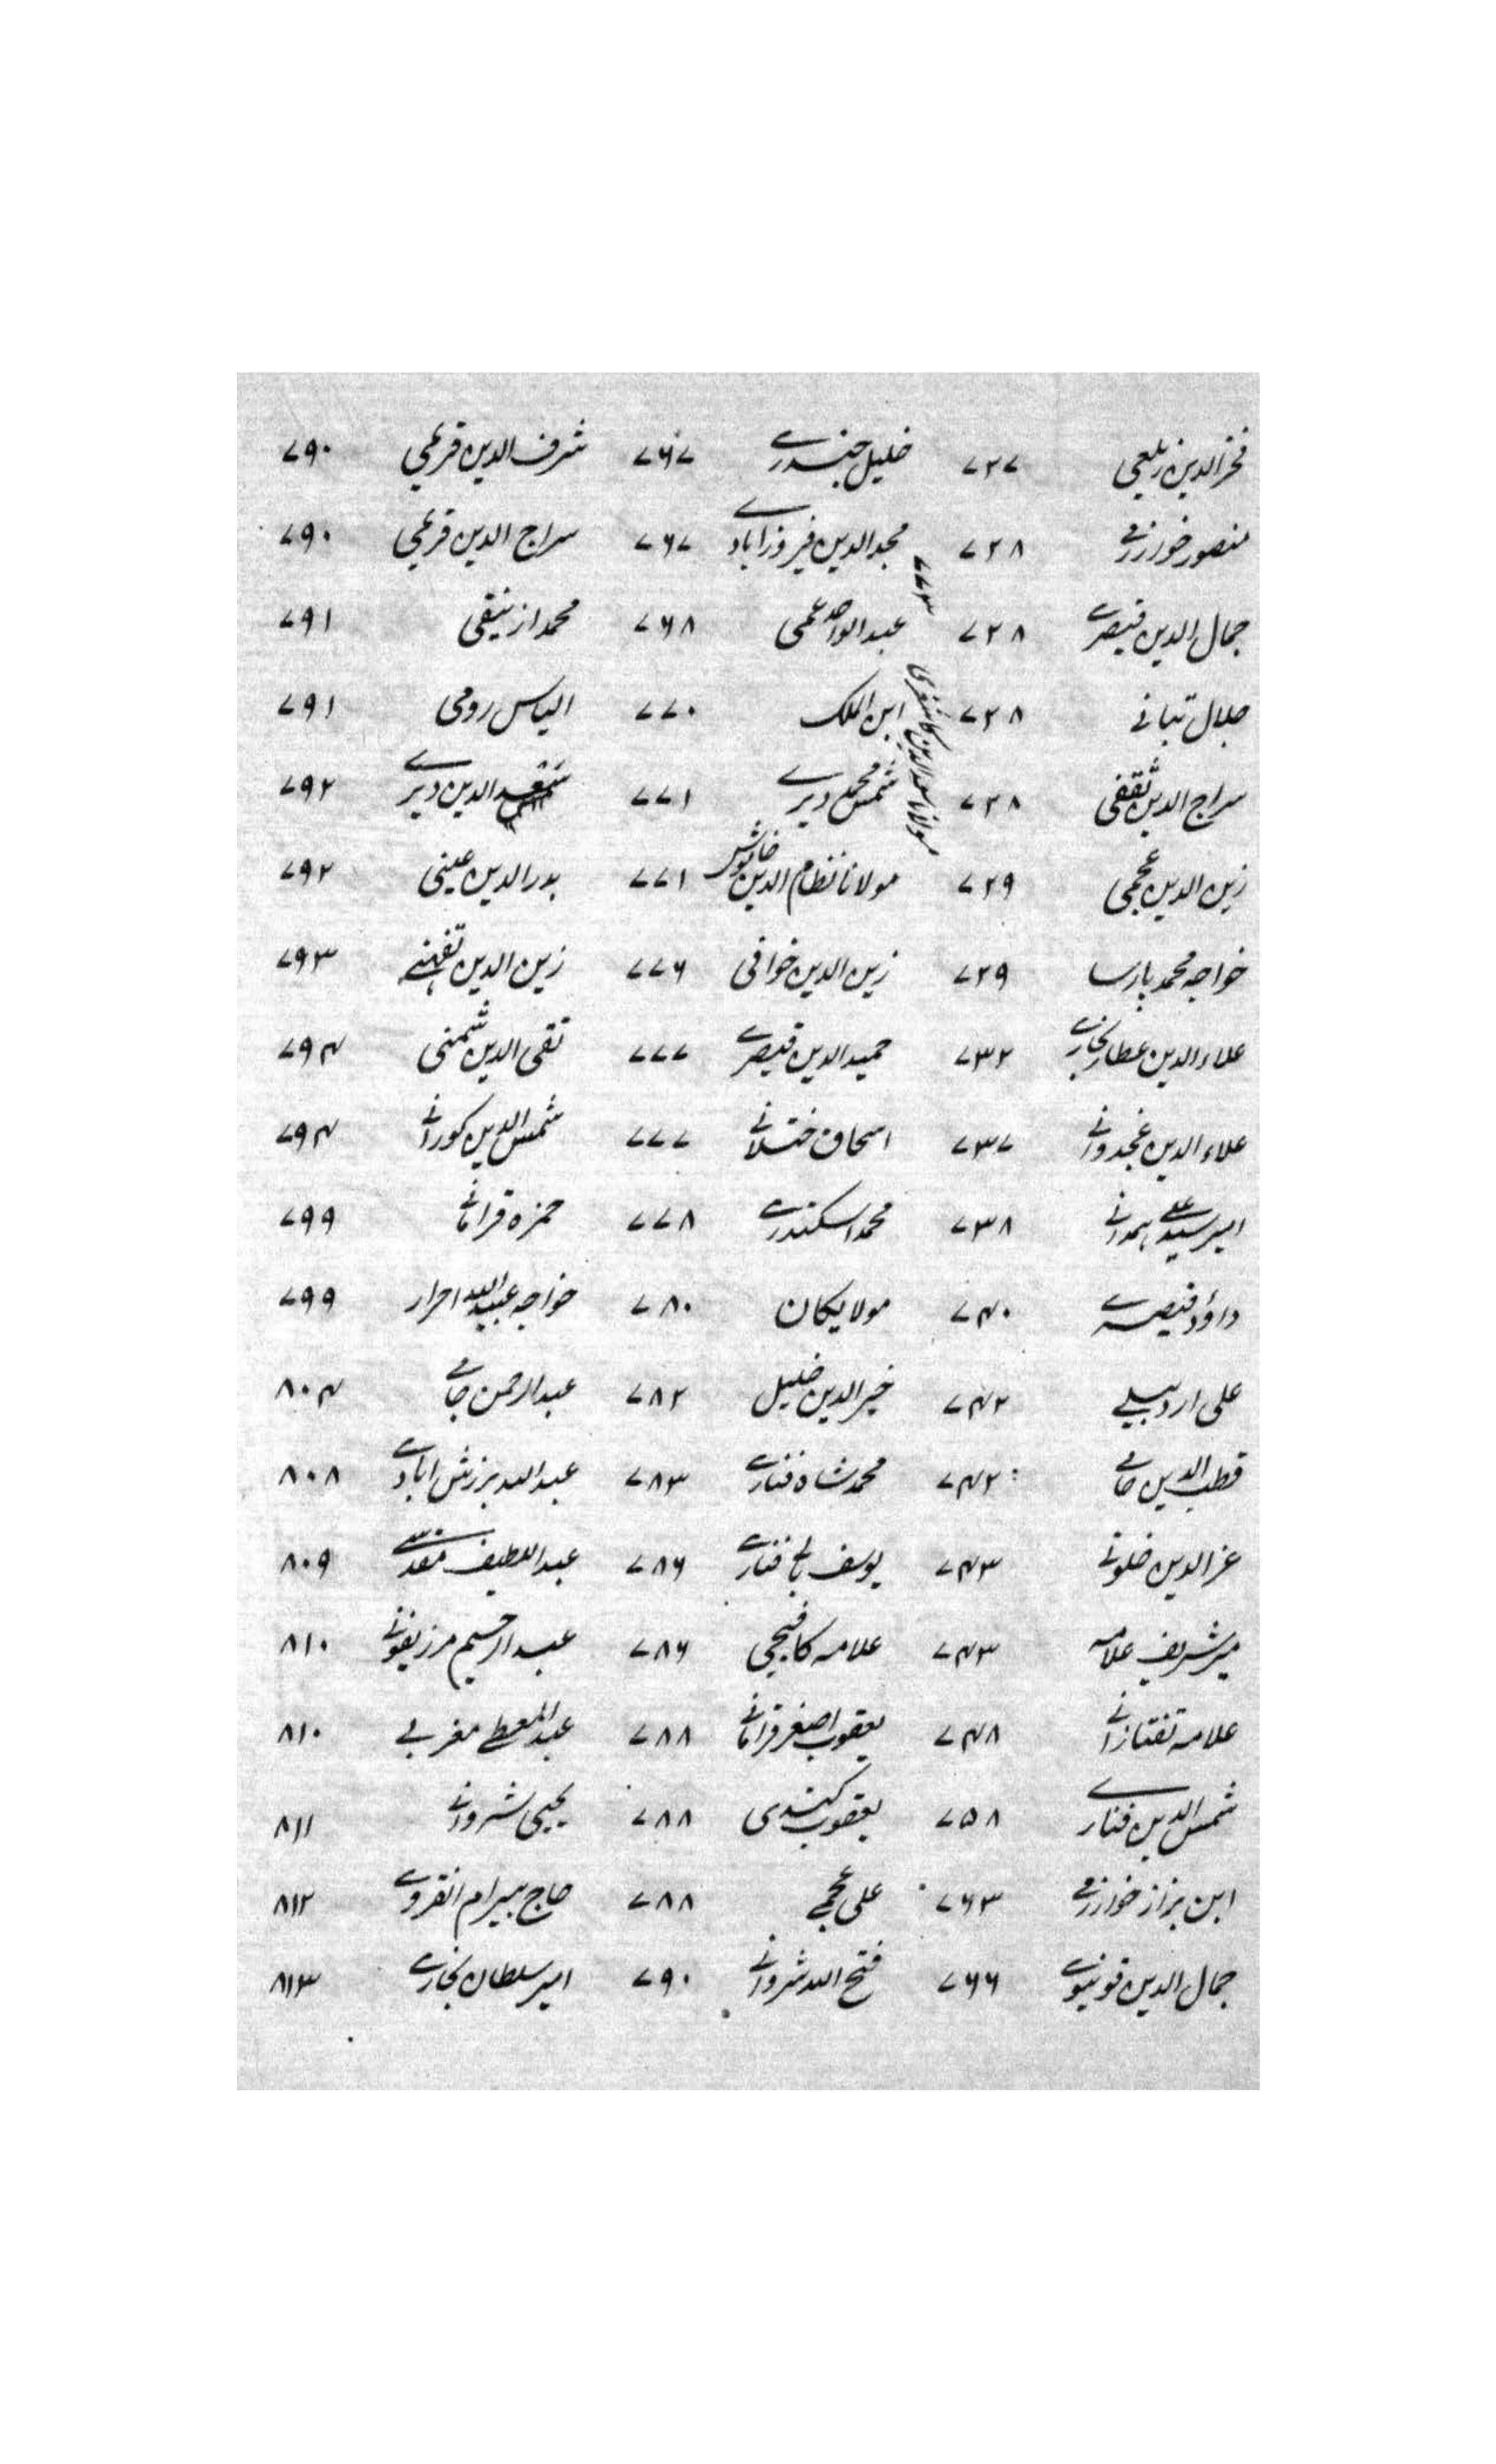 فخرالدین زیلعی ۷۲۷ خلیل جندرے ۷۶۷ شرف الدین قریمی ۷۹۰
منصور خوارزمے ۷۲۸ مجدالدین فیروزابادے ۷۶۷ سراج الدین قریمی ۷۹۰
جمال الدین قیصرے ۷۲۸ عبدالواحد عجمی ۷۶۸ محمد ازنیقی ۷۹۱
جلال تبانے ۷۲۸ ابن الملک ۷۷۰ الیاس رومی ۷۹۱
مولانا سعدالدین کاشغری ۷۷۳
سراج الدین ثقفی ۷۲۸ شمس محمد دیرے ۷۷۱ الدین دیرے ۷۹۲
زین الدین عجمی ۷۲۹ مولانا نظام الدین خاموش ۷۷۱ بدرالدین عینی ۷۹۲
خواجه محمد پارسا ۷۲۹ زین الدین خوافی ۷۷۶ زین الدین تفهنے ۷۹۳
علاءالدین عطار بخارے ۷۳۲ حمیدالدین قیصرے ۷۷۷ تقی الدین شمنی ۷۹۴
علاءالدین غجدوانے ۷۳۷ اسحاق ختلانے ۷۷۷ شمس الدین کورانے ۷۹۴
امیر سید علے همدانے ۷۳۸ محمد اسکندرے ۷۷۸ حمزه قرامانے ۷۹۹
داؤد قیصرے ۷۴۰ مولا یکان ۷۸۰ خواجه عبیدالله احرار ۷۹۹
علی اردبیلے ۷۴۲ خیرالدین خلیل ۷۸۲ عبدالرحمن جامے ۸۰۴
قطب الدین جامے ۷۴۲ محمد شاه فنارے ۷۸۳ عبدالله برزش ابادے ۸۰۸
عزالدین خلوتے ۷۴۳ یوسف بالی فنارے ۷۸۶ عبداللطیف مقدسے ۸۰۹
میر شریف علامه ۷۴۳ علامه کافیجی ۷۸۶ عبدالرحیم مرزیفونے ۸۱۰
علامه تفتازانے ۷۴۸ یعقوب اصغر قرامانے ۷۸۸ عبدالمعطے مغربے ۸۱۰
شمس الدین فنارے ۷۵۸ یعقوب کندی ۷۸۸ یحیی شروانے ۸۱۱
ابن بزاز خوارزمے ۷۶۳ علی عجمے ۷۸۸ حاج بیرام انقروے ۸۱۲
جمال الدین قونیوے ۷۶۶ فتح الله شروانے ۷۹۰ امیر سلطان بخارے ۸۱۳